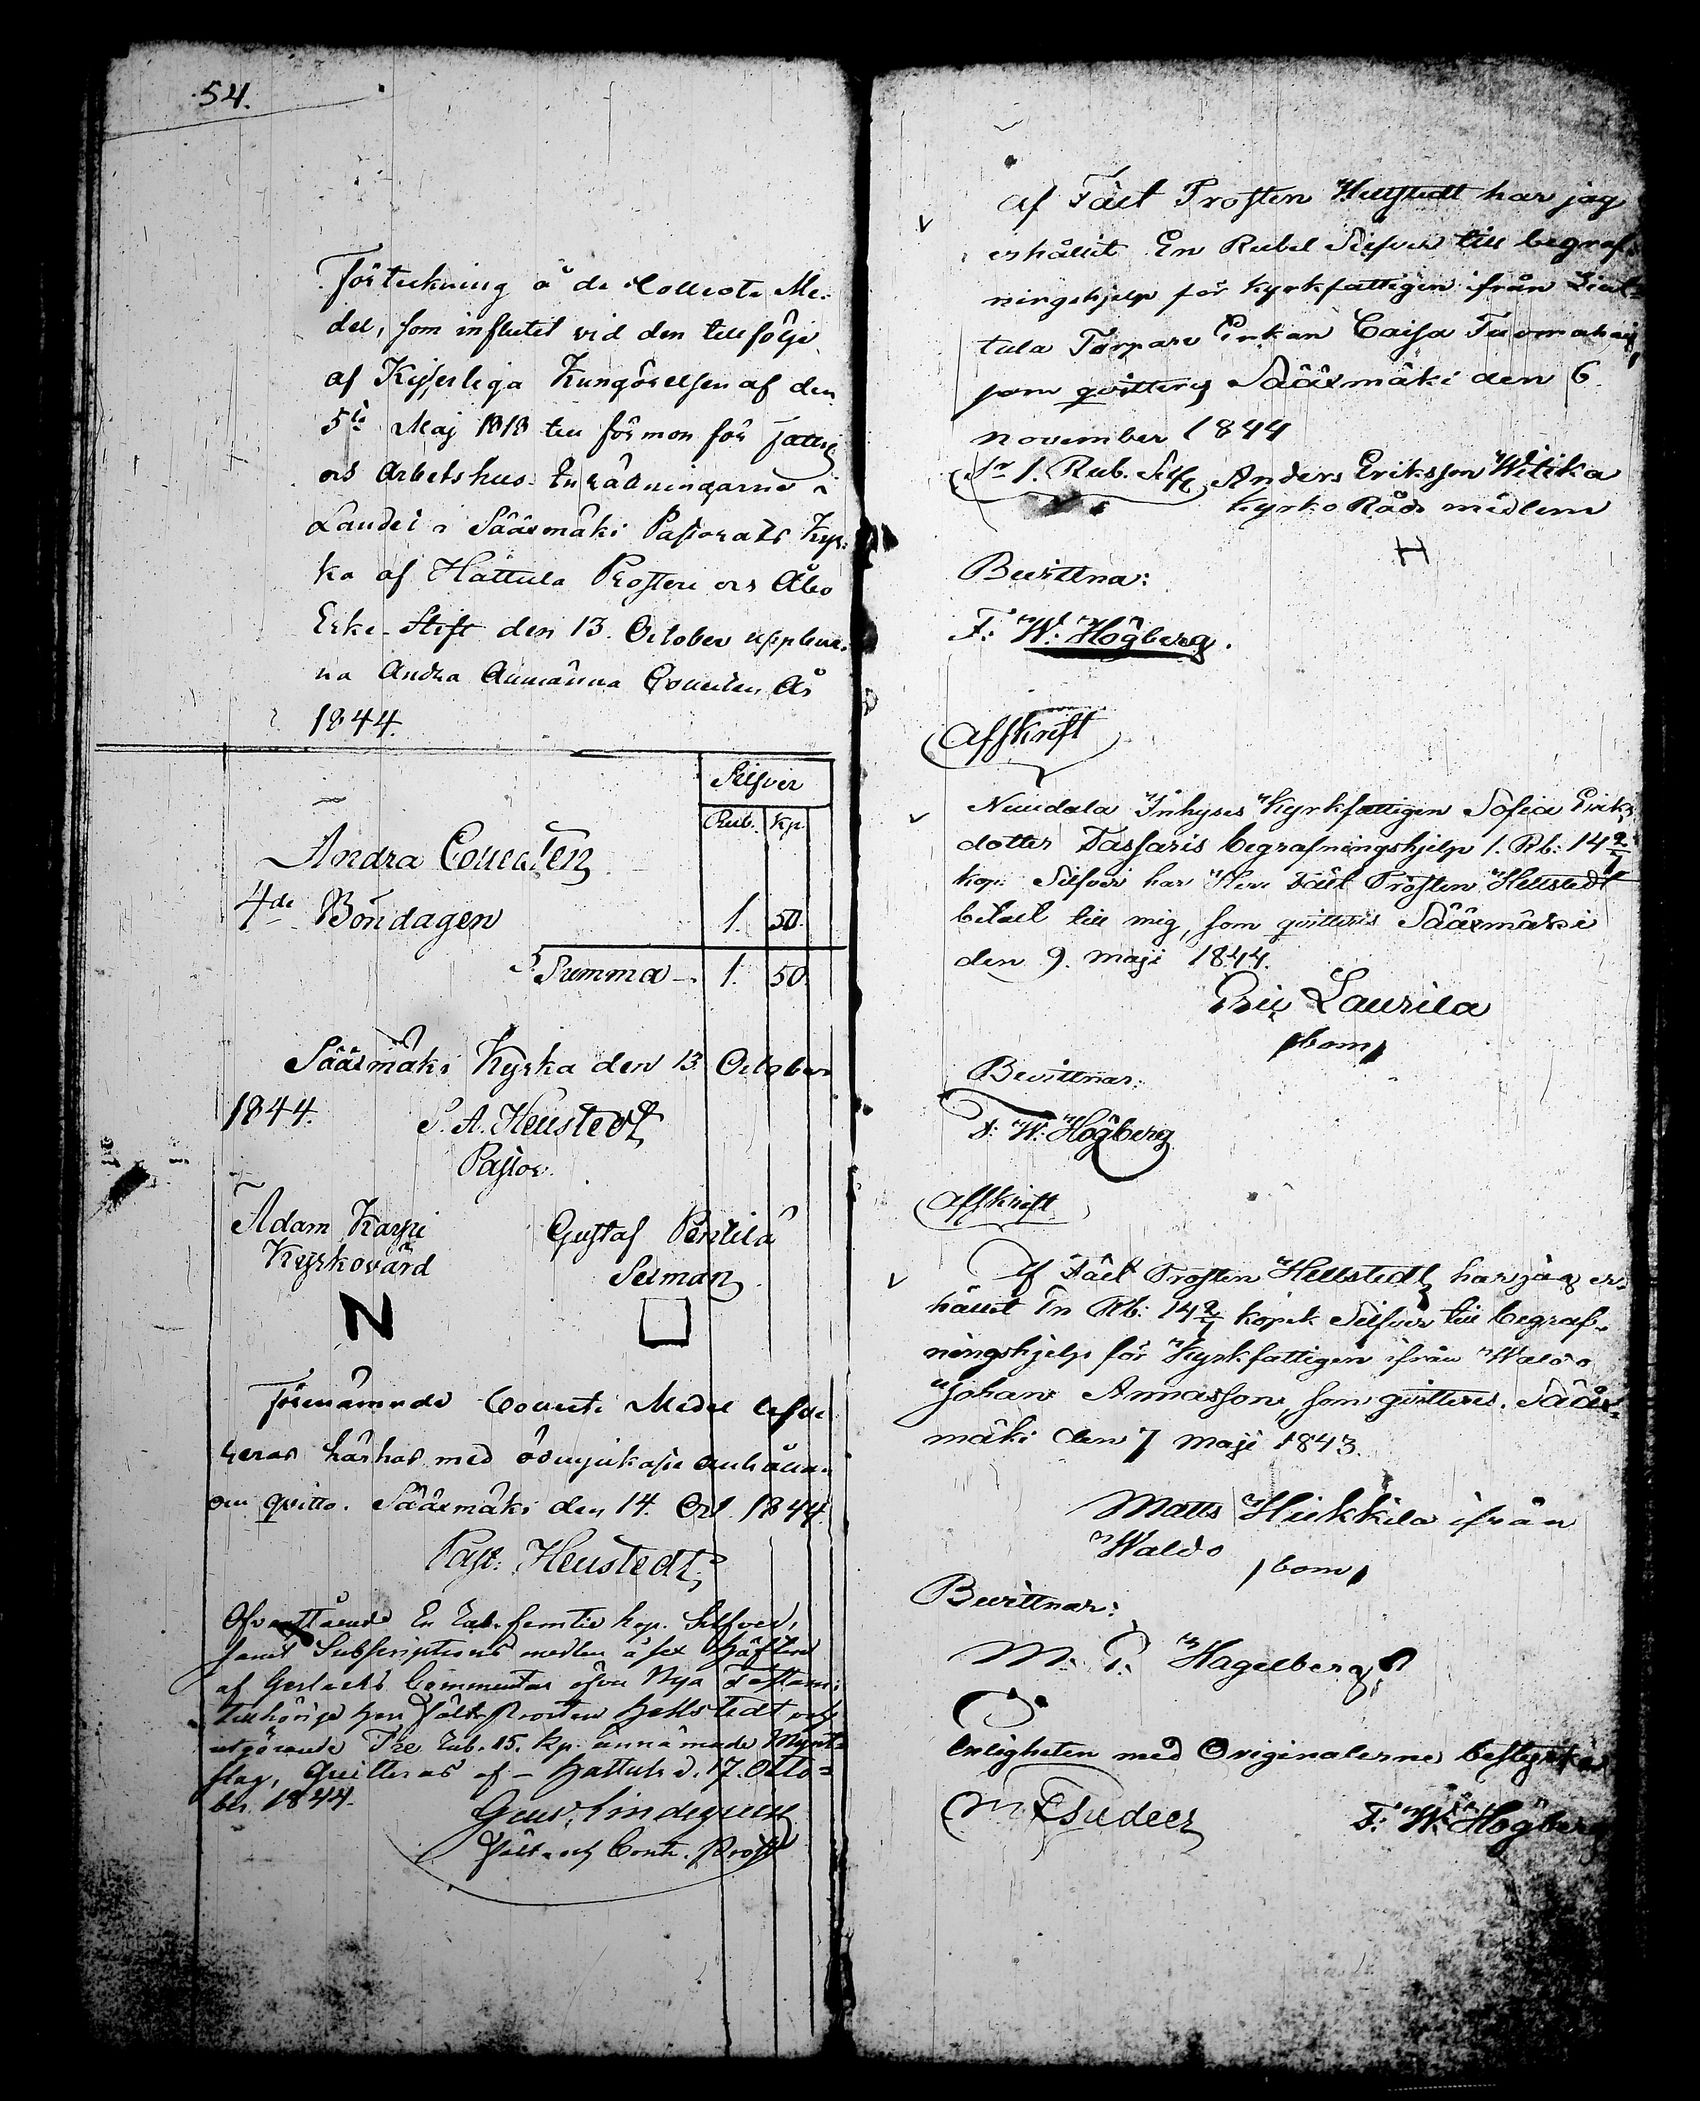 54.
Förteckning å de Collecte Me-
del, som influtit vid den till följe
af Kejserliga Kungörelsen af den
5te Maj 1818 till förmon för fattig
och Arbetshus-Inrättningarne i
Landet i Sääxmäki Pastorats Kyr-
ka af Hattula Prosteri och Åbo
Erke-Stift den 13 October uppbur-
na Andra Allmänna Collecten År
1844.
Silfver
Rub. Kp.
Andra Collecten
4de Böndagen 1. 50.
Summa 1. 50
Sääxmäki Kyrka den 13 October
1844. S. A. Hellstedt
Pastor.
Adam Karpi Gustaf Pentilä
Kyrkovärd Sexman
N
Förenämnde Collecte Medel lefve-
reras härhos med ödmjukaste anhållan
om qvitto. Sääxmäki den 14. Oct. 1844.
Past: Hellstedt
Ofvanstående En Rub. femtio kop. Silfver,
samt Subscriptions medlen å sex Häften
af Gerlachs Commentar öfver Nya Testam:
tillhörige Herr Fält Prosten Hellstedt och
utgörande Tre Rub. 15. kp. i nämnde Mynt-
slag, qvitteras af - Hattula d. 17. Octo-
ber 1844.
Gust: Lindequist
Fält- och Contr. Prost
Af Fält Prosten Hellstedt har jag
erhållit En Rubel Silfver till begraf-
ningshjelp för kyrkfattigen ifrån
tula Torpare Enkan Caisa Tuomahai,
som qvitteras Sääxmäki den 6
november 1844
Sr 1. Rub. Silfr Anders Eriksson Witika
Kyrko Råds medlem
H
Bevittna:
F: W: Högberg.
Affskrift
Nuudala Inhyses Kyrkfattigen Sofia Eriks
dotter Tassaris begrafningshjelp 1. Rb: 14 2/7
kop. Silfver har Herr Fält Prosten Hellstedt
betalt till mig, som qvitteras Sääxmäki
den 9. maji 1844.
Eric Laurila
bom
Bevittnar:
F: W: Högberg
Affskrift
Af Fält Prosten Hellstedt har jag er-
hållit En Rb: 14 2/7 kopek Silfver till begraf-
ningshjelp för Kyrkfattigen ifrån Waldo
Johan Annasson, som qvitteras. Sääx-
mäki den 7 maji 1843.
Matts Hiekkila ifrån
Waldo
bom
Bevittnar:
M. P. Hagelberg
Enligheten med Originalerne, bestyrka
F: W: Högberg